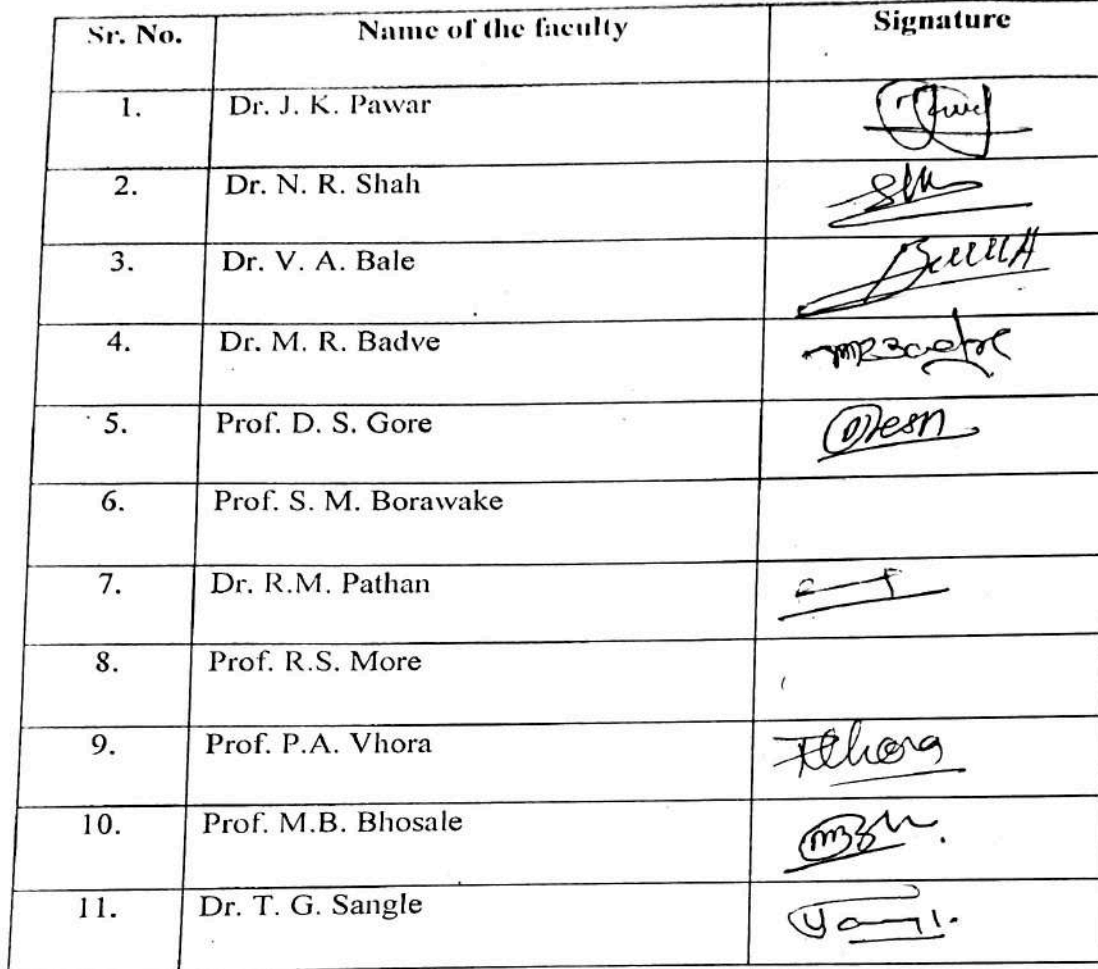 Sr. No. Name of the faculty Signature
1. Dr. J. K. Pawar
2. Dr. N. R. Shah
3. Dr. V. A. Bale
4. Dr. M. R. Badve
5. Prof. D. S. Gore
6. Prof. S. M. Borawake
7. Dr. R.M. Pathan
8. Prof. R.S. More
9. Prof. P.A. Vhora
10. Prof. M.B. Bhosale
11. Dr. T. G. Sangle